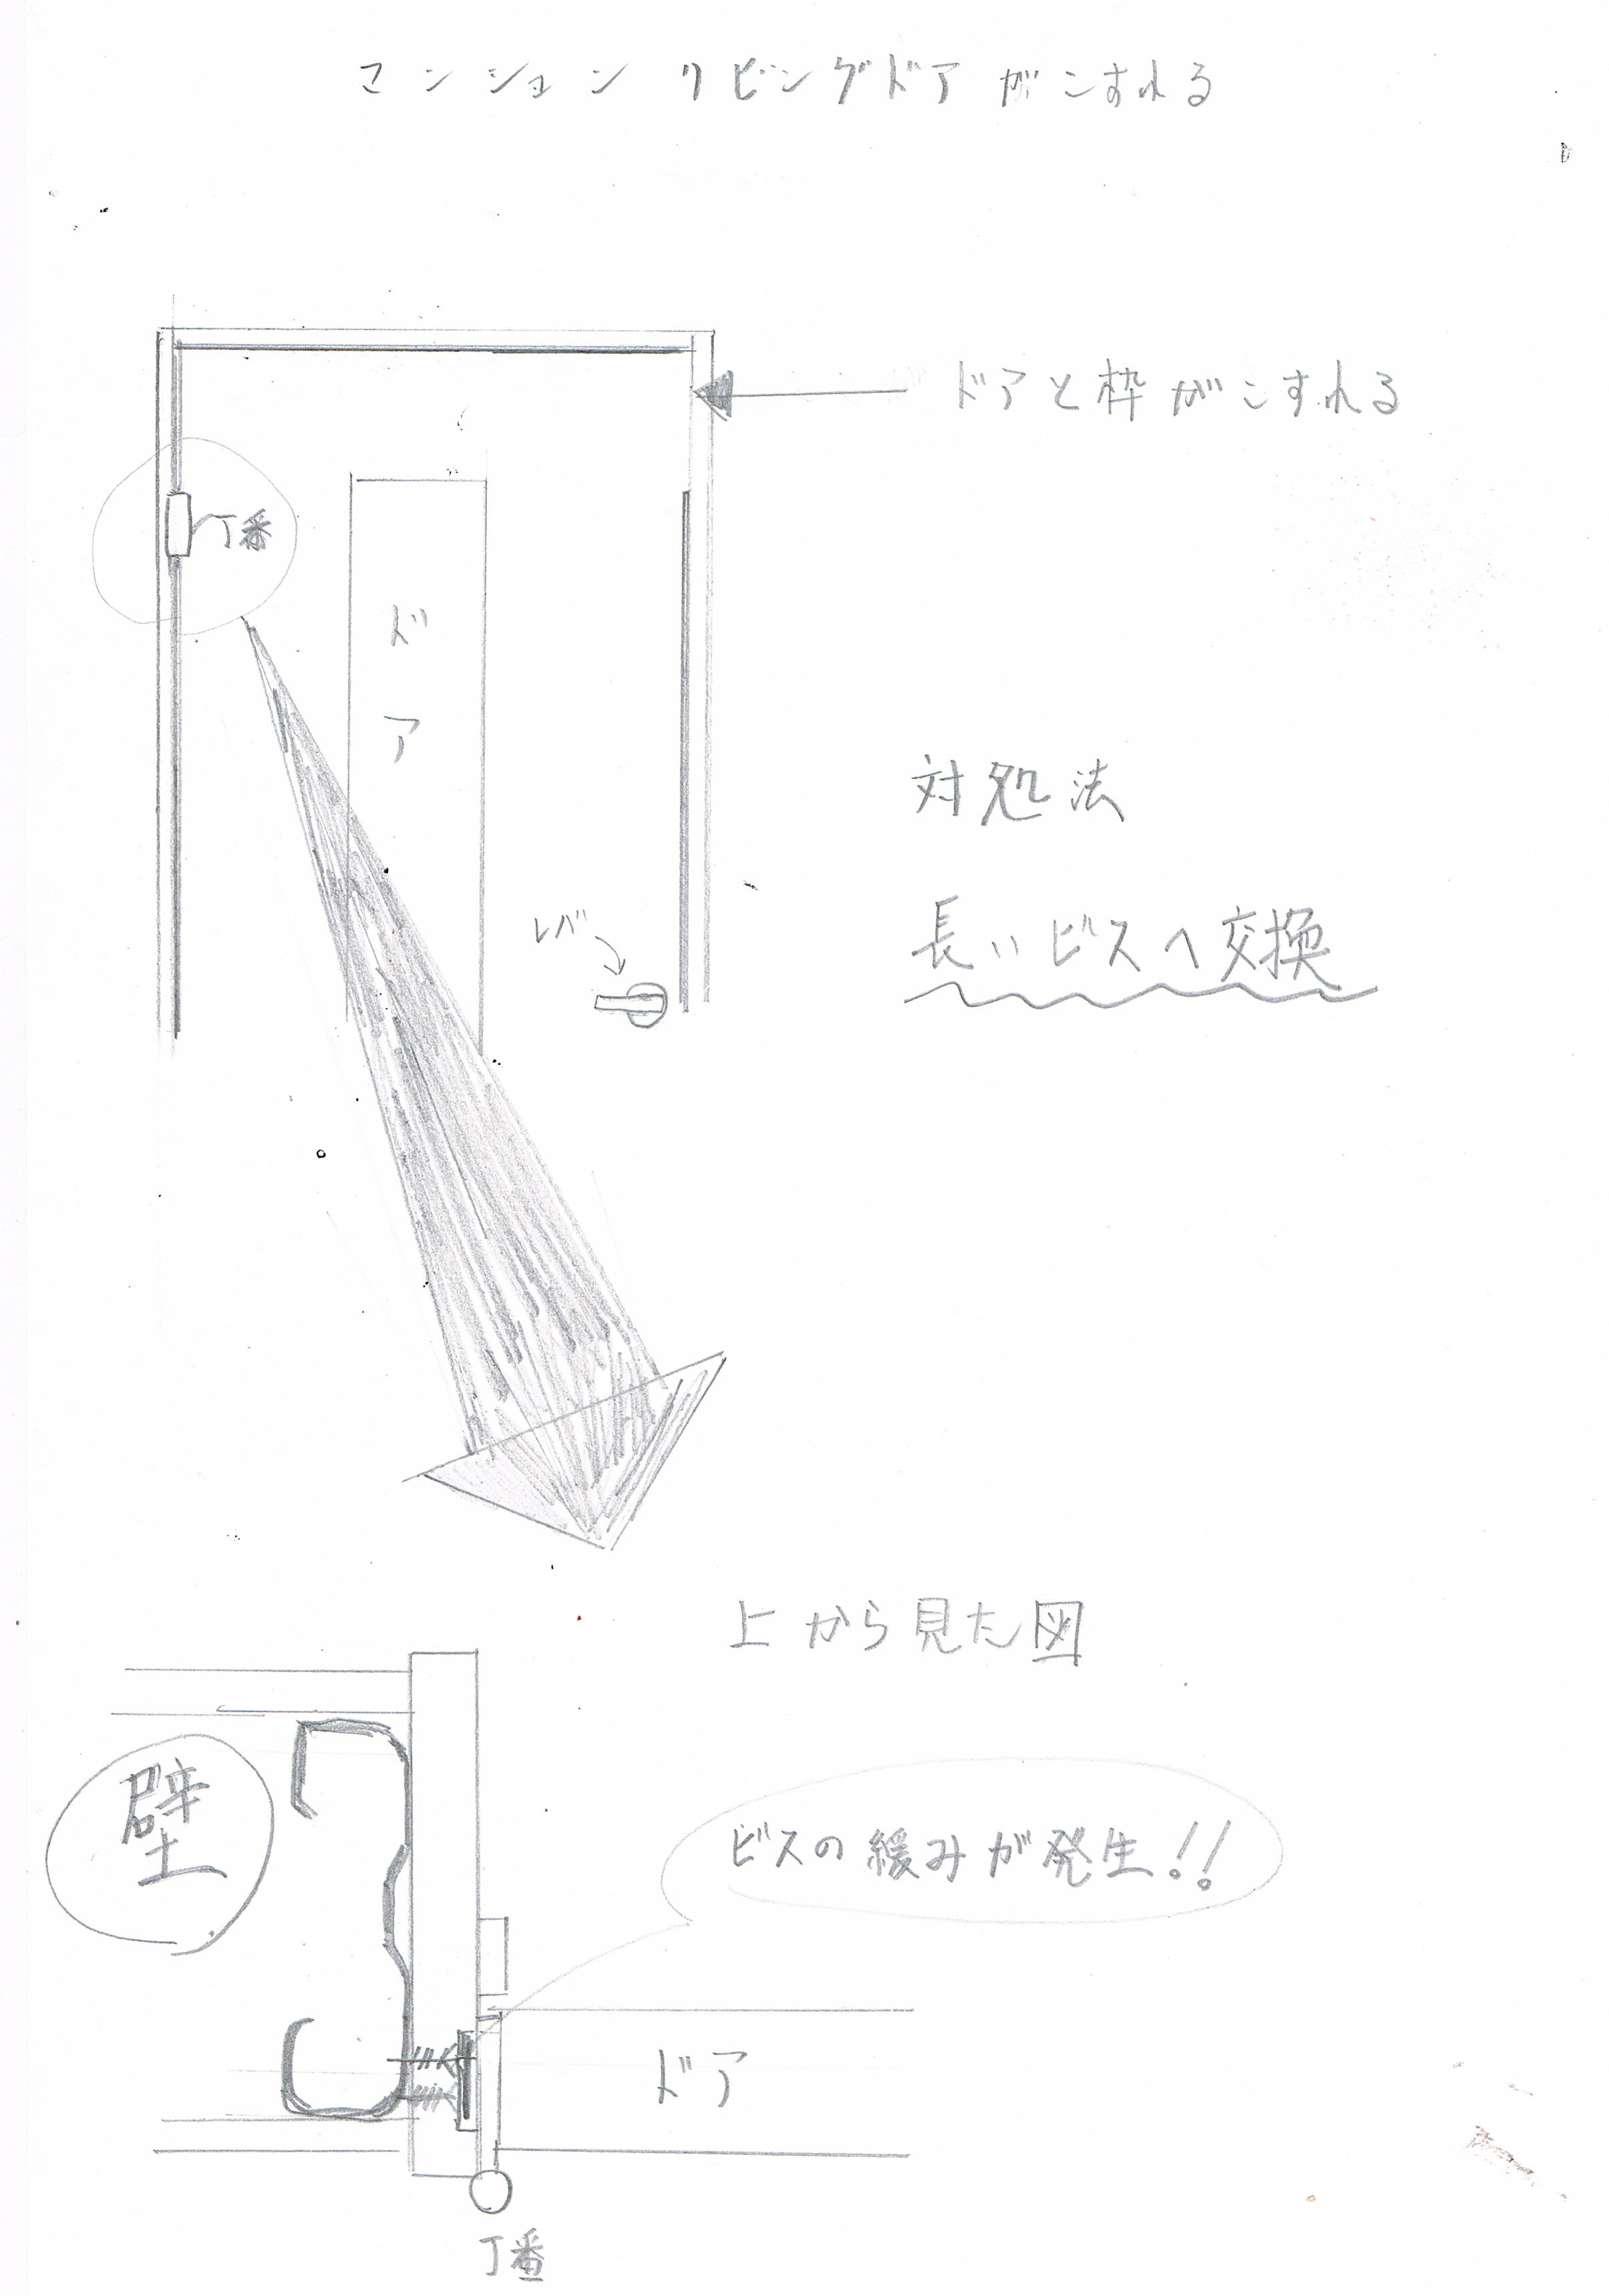 マンション リビングドアがこすれる
ドアと枠がこすれる
丁番
ドア
対処法
レバ
長いビスへ交換
上から見た図
壁
ビスの緩みが発生!!
ドア
丁番